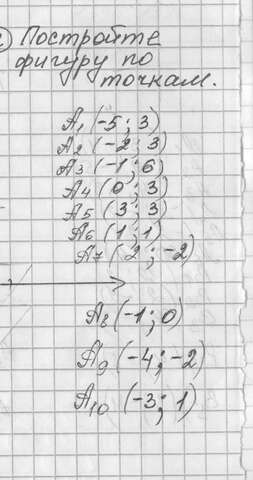 ② Постройте
фигуру по
точкам.
A₁ (-5; 3)
A₂ (-2; 3)
A₃ (-1; 6)
A₄ (0; 3)
A₅ (3; 3)
A₆ (1; 1)
A₇ (2; -2)
A₈ (-1; 0)
A₉ (-4; -2)
A₁₀ (-3; 1)